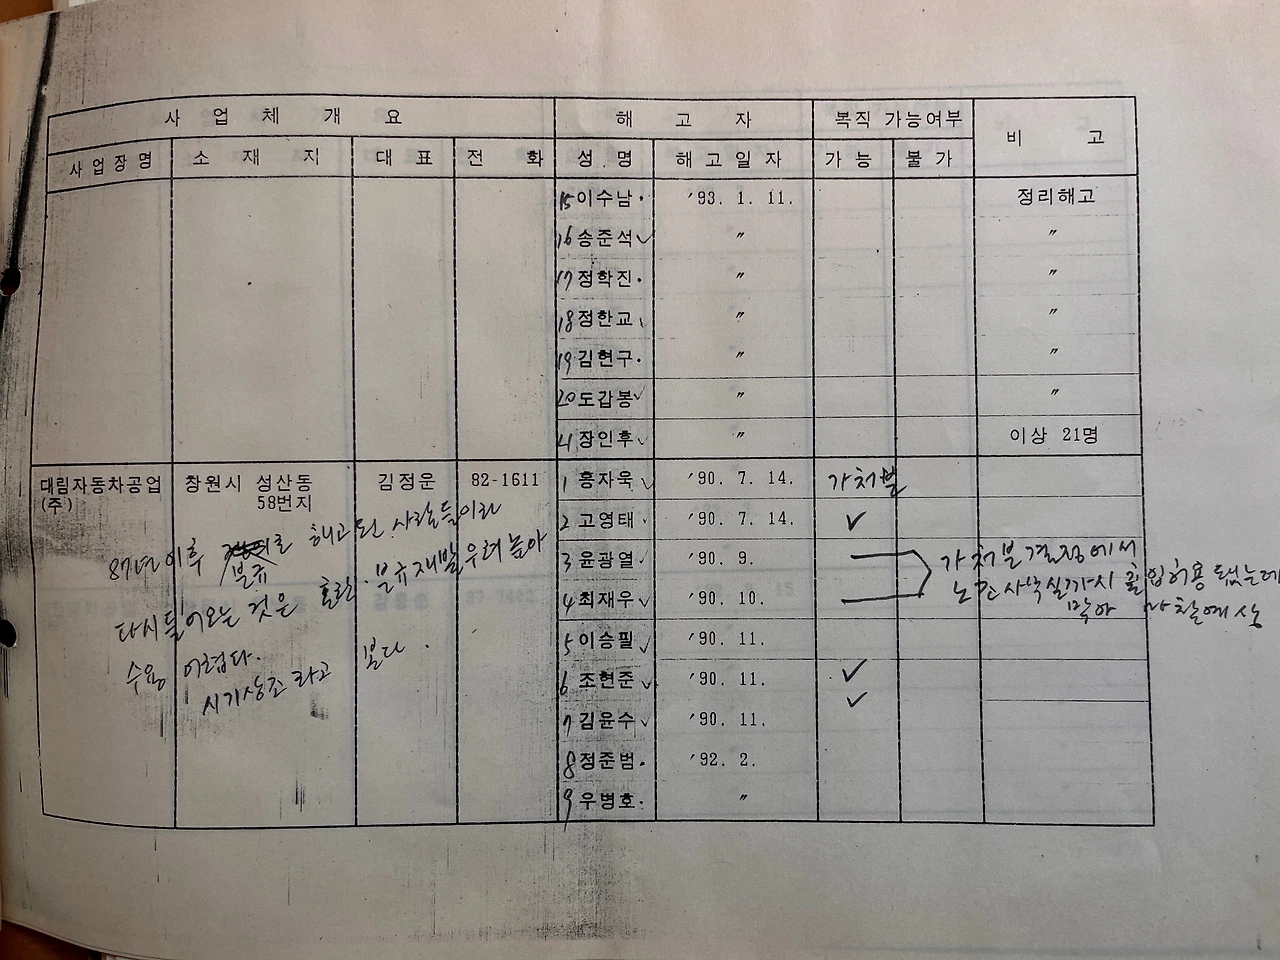 사 업 체 개 요 해 고 자 복직 가능여부 비 고
사업장명 소 재 지 대 표 전 화 성 명 해고일자 가 능 불 가
15 이수남 · '93. 1. 11. 정리해고
16 송준석 ✓ 〃 〃
17 정학진 · 〃 〃
18 정한교 〃 〃
19 김현구 · 〃 〃
20 도갑봉 ✓ 〃 〃
21 장인후 ✓ 〃 이상 21명
대림자동차공업 창원시 성산동 김정운 82-1611 1 홍자욱 ✓ '90. 7. 14. 가처분
(주) 58번지
2 고영태 ✓ '90. 7. 14. ✓
87년 이후 분규로 해고된 사람들이라
3 윤광열 ✓ '90. 9. 가처분결정에서
다시 들어오는 것은 혼란. 분규재발 우려 높아
4 최재우 ✓ '90. 10. 노조사무실까지 출입허용 됐는데
막아 마찰예상
수용 어렵다.
5 이승필 ✓ '90. 11.
시기상조라고 본다.
6 조현준 ✓ '90. 11. ✓
7 김윤수 ✓ '90. 11. ✓
8 정준범 · '92. 2.
9 우병호 · 〃